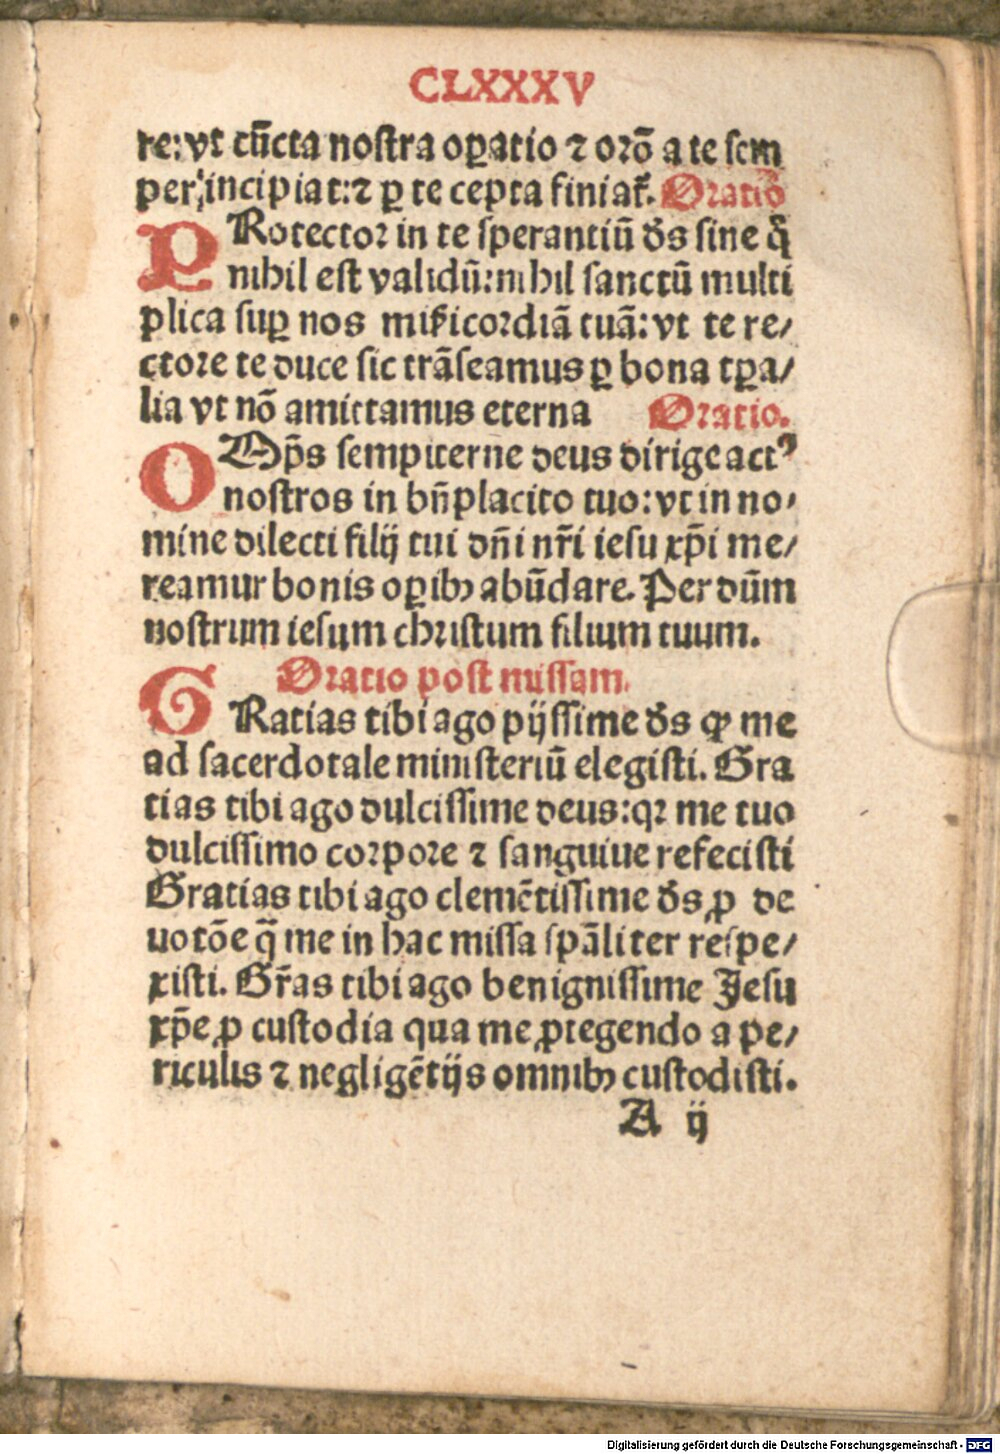 CLXXXV
re: vt cūcta nostra oꝑatio ⁊ orō a te sem
per incipiat: ⁊ ꝑ te cepta finiat᷑. Oratio
PRotector in te sperantiū ds̄ sine q̄
nihil est validū: nihil sanctū multi
plica suꝑ nos misicordiā tuā: vt te re/
ctore te duce sic trāseamus ꝑ bona tꝑa/
lia vt nō amittamus eterna Oratio.
OMp̄s sempiterne deus dirige actꝰ
nostros in bn̄placito tuo: vt in no/
mine dilecti filij tui dn̄i nr̄i iesu xp̄i me/
reamur bonis oꝑibꝫ abūdare. Per dūm
nostrum iesum christum filium tuum.
Oratio post missam.
GRatias tibi ago pijssime ds̄ ꝙ me
ad sacerdotale ministeriū elegisti. Gra
tias tibi ago dulcissime deus: qꝛ me tuo
dulcissimo corpore ⁊ sanguiue refecisti
Gratias tibi ago clemētissime ds̄ ꝓ de
uotōe q̄ me in hac missa spāliter respe/
xisti. Gr̄as tibi ago benignissime Jesu
xp̄e ꝓ custodia qua me ꝓtegendo a pe/
riculis ⁊ negligētijs omnibꝫ custodisti.
A ij
Digitalisierung gefördert durch die Deutsche Forschungsgemeinschaft - DFG